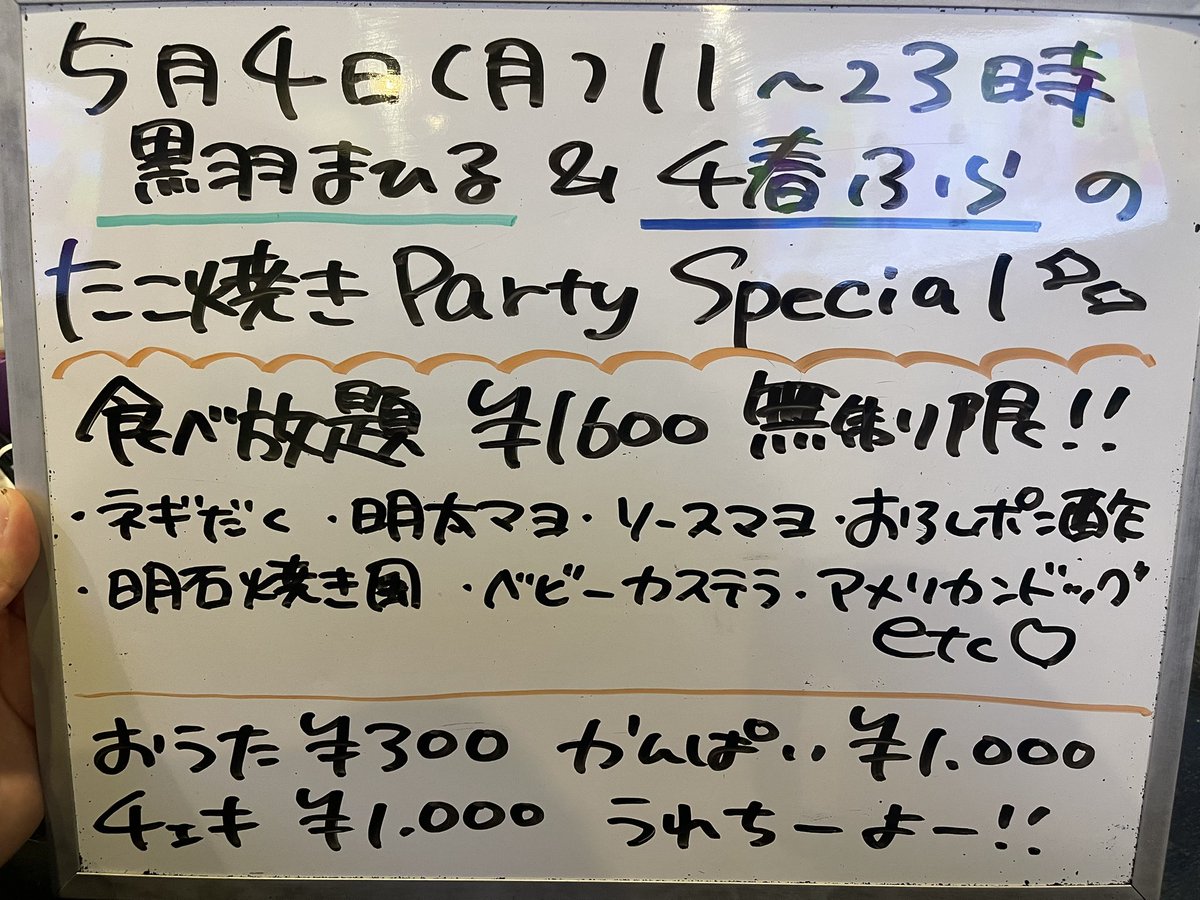 5月4日(月)11~23時
黒羽まひる & 4春ふらの
たこ焼き Party Special
食べ放題 ¥1600 無制限!!
・ネギだく ・明太マヨ ・ソースマヨ ・おろしポン酢
・明石焼き風 ・ベビーカステラ ・アメリカンドッグ
etc♡
おうた ¥300 かんぱい ¥1.000
チェキ ¥1.000 うれちーよー!!